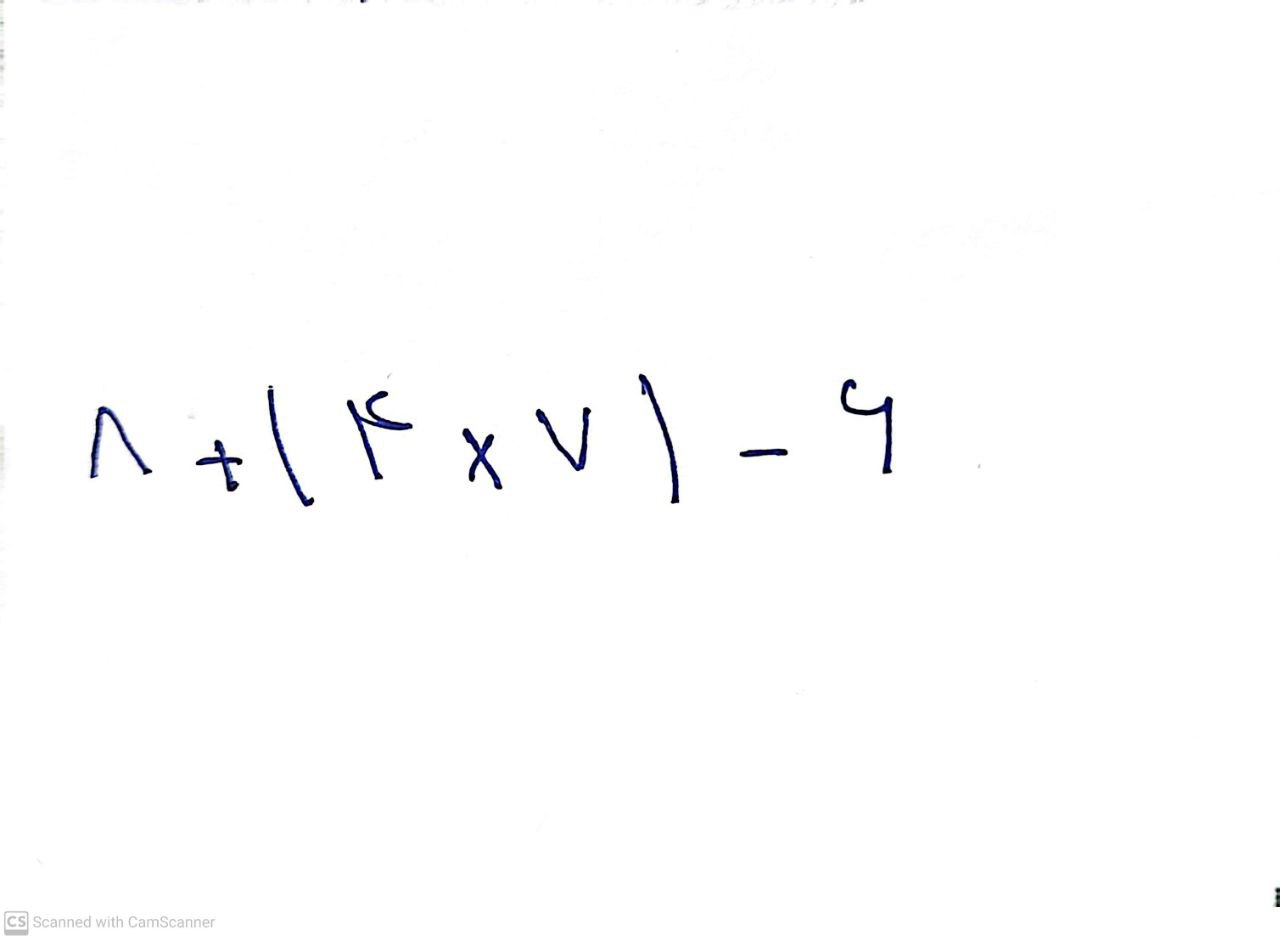 ۸ + (۴ × ۷) - ۶
CS Scanned with CamScanner